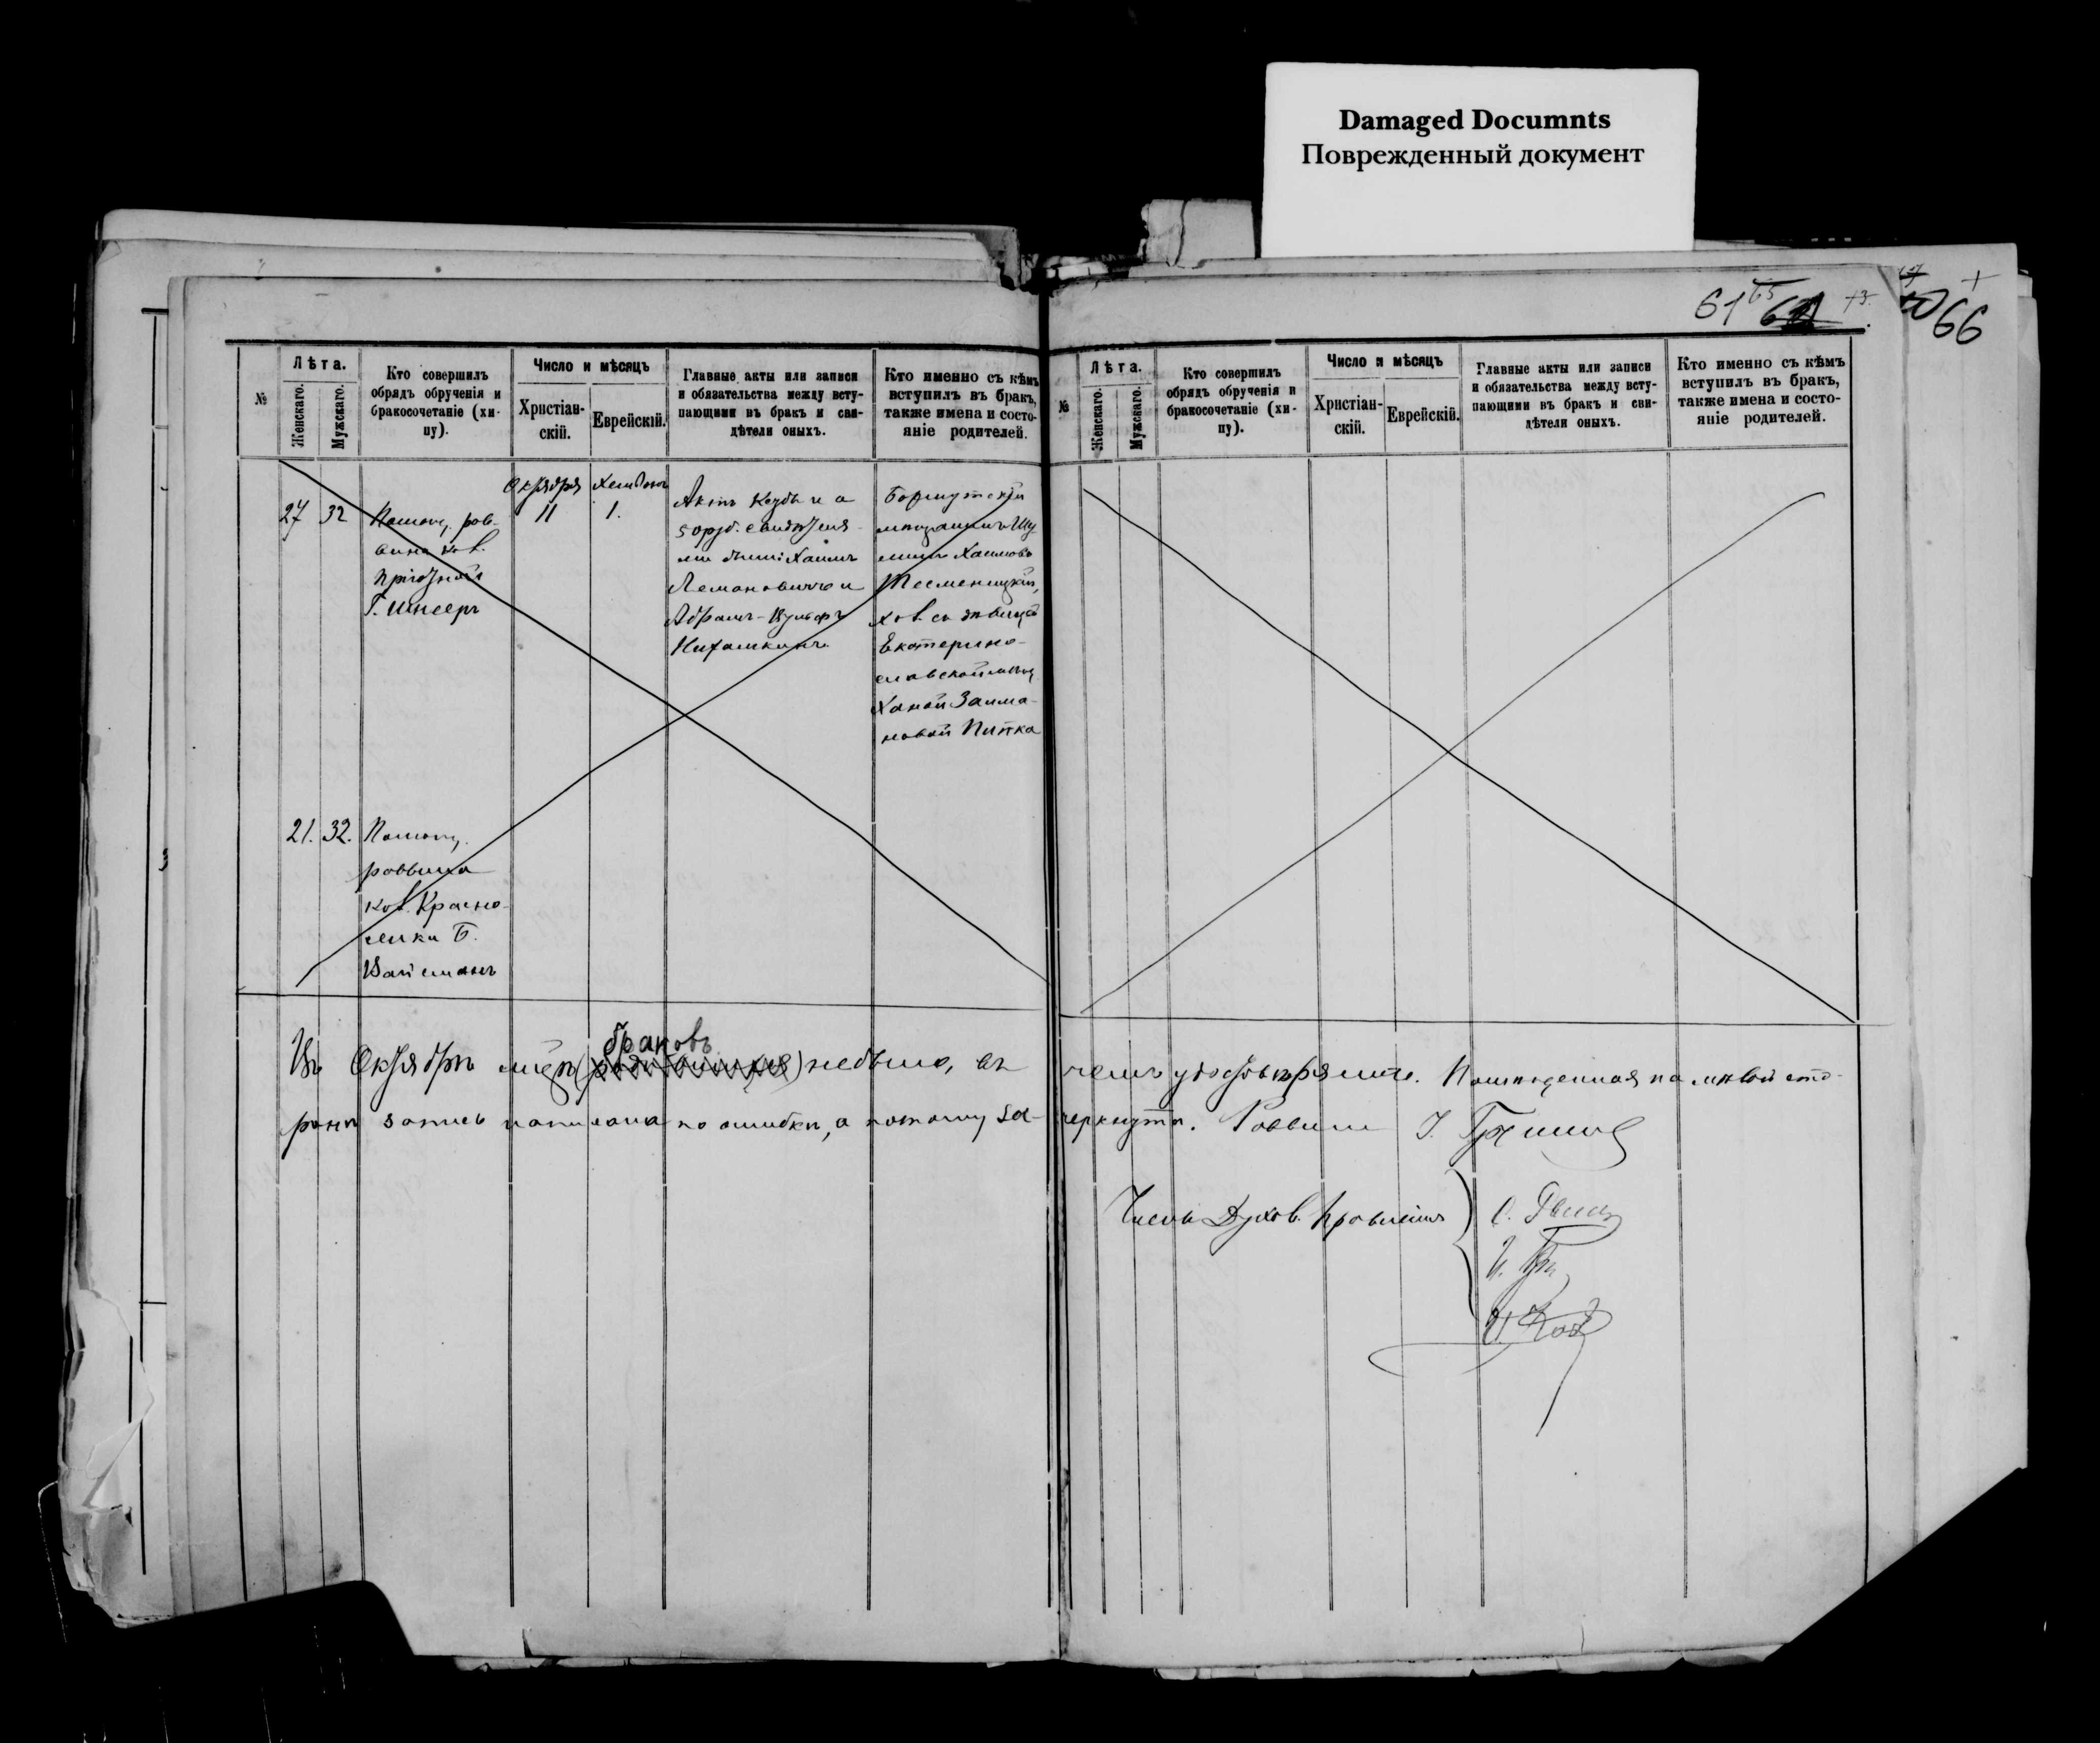 Damaged Documnts
Поврежденный документ
61 65 66
№
Лѣта.
Женскаго.
Мужскаго.
Кто совершилъ
обрядъ обрученія и
бракосочетаніе (хи-
пу).
Число и мѣсяцъ
Христіан-
скій.
Еврейскій.
Главные акты или записи
и обязательства между всту-
пающими въ бракъ и сви-
дѣтели оныхъ.
Кто именно съ кѣмъ
вступилъ въ бракъ,
также имена и состо-
яніе родителей.
27 32
Помощ. рав-
вина кол.
Пріютной
Г. Шнееръ
Октября
11
Хешвонъ
1.
Актъ Ксубы на
50 руб. свидѣтеля-
ми были: Хаимъ
Лемановичъ и
Абрамъ-Вульфъ
мѣщанинъ Шу
лимъ Хаимовъ
Тесменицкій,
хол. съ дѣвицей
Екатерино-
славской мѣщ.
Ханой Залма-
новой Пипка
21. 32.
Помощ.
раввина
кол. Красно-
селки Б.
Вайсманъ
№
Лѣта.
Женскаго.
Мужскаго.
Кто совершилъ
обрядъ обрученія и
бракосочетаніе (хи-
пу).
Число и мѣсяцъ
Христіан-
скій.
Еврейскій.
Главные акты или записи
и обязательства между всту-
пающими въ бракъ и сви-
дѣтели оныхъ.
Кто именно съ кѣмъ
вступилъ въ бракъ,
также имена и состо-
яніе родителей.
браковъ
Въ Октябрѣ мѣс. небыло, въ чемъ удостовѣряемъ. Помѣщенная на лѣвой сто-
ронѣ запись написана по ошибкѣ, а потому за- черкнута. Раввинъ
Члены Духов. Правленія